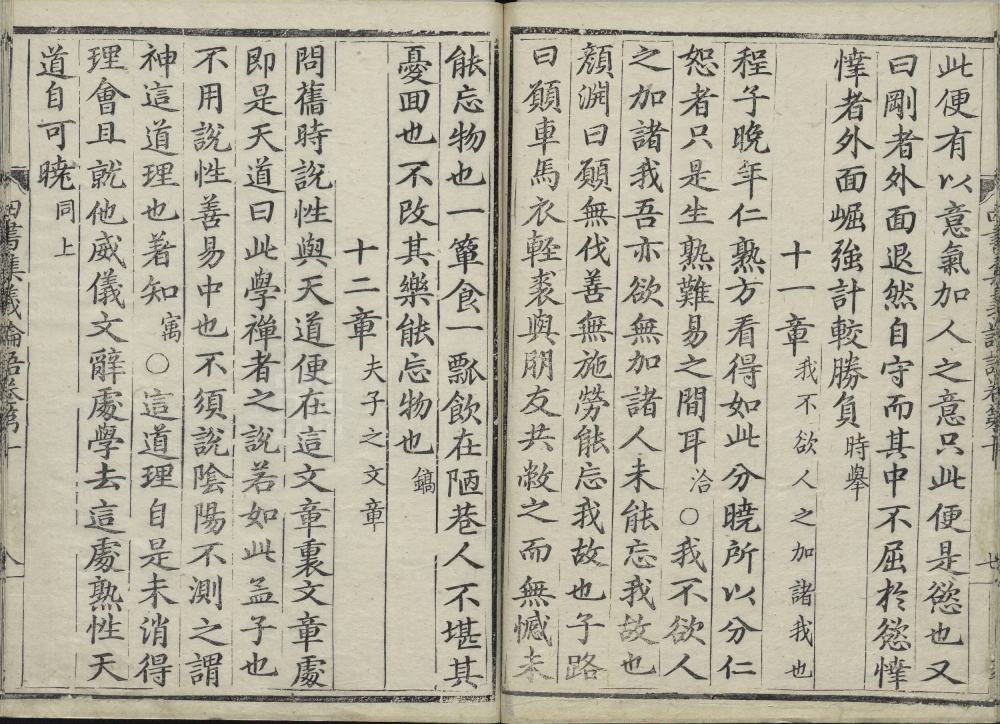 此便有以意氣加人之意只此便是慾也又
曰剛者外面退然自守而其中不屈於慾悻
悻者外面崛強計較勝負時舉
十一章我不欲人之加諸我也
程子晚年仁熟方看得如此分曉所以分仁
恕者只是生熟難易之間耳洽○我不欲人
之加諸我吾亦欲無加諸人未能忘我故也
顏淵曰願無伐善無施勞能忘我故也子路
曰願車馬衣輕裘與朋友共敝之而無憾未
能忘物也一簞食一瓢飲在陋巷人不堪其
憂回也不改其樂能忘物也鎬
十二章夫子之文章
問舊時說性與天道便在這文章裏文章處
即是天道曰此學禪者之說若如此孟子也
不用說性善易中也不須說陰陽不測之謂
神這道理也著知㝢○這道理自是未消得
理會且就他威儀文辭處學去這處熟性天
道自可曉同上
四書集義論語卷第十